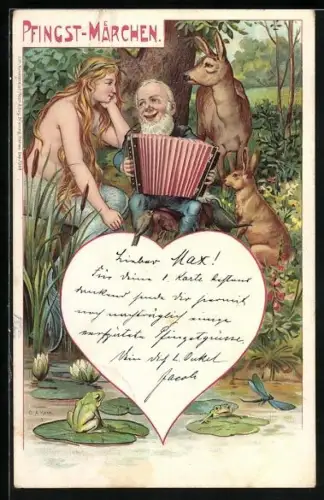 PFINGST-MÄRCHEN.
Lieber Max!
Für deine 1. Karte bestens
dankend sende dir hiermit
noch nachträglich einige
verspätete Pfingstgrüsse.
Dein dich l. Onkel
Jacob